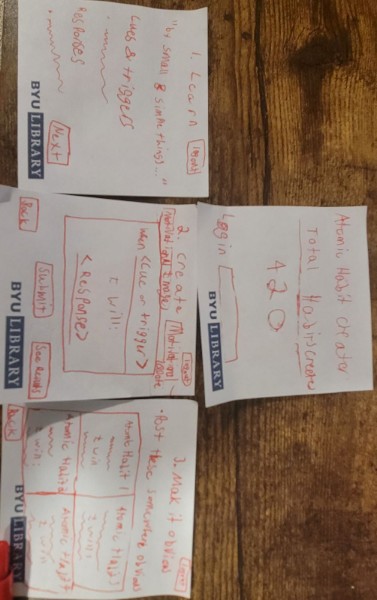 Atomic Habit Creator
Total Habits Created
420
Login
BYU LIBRARY
1. Learn
logout
"by small & simple things..."
Cues & triggers
Responses
Next
BYU LIBRARY
2. Create
logout
Motivational Image
Motivational
Quote
When <Cue or trigger>
I will:
<Response>
Submit
See Results
Back
BYU LIBRARY
3. Make it obvious
logout
• Post these somewhere obvious
Atomic Habit 1
I will
Atomic Habit
I will:
Atomic Habit
I will:
Atomic Habit
I will
Back
BYU LIBRARY